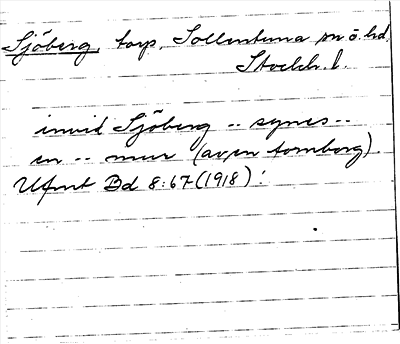 Sjöberg, torp, Sollentuna sn o. hd,
Stockh. l.
invid Sjöberg -- synes --
en -- mur (av en fornborg).
Ufmt Bd 8:67 (1918):